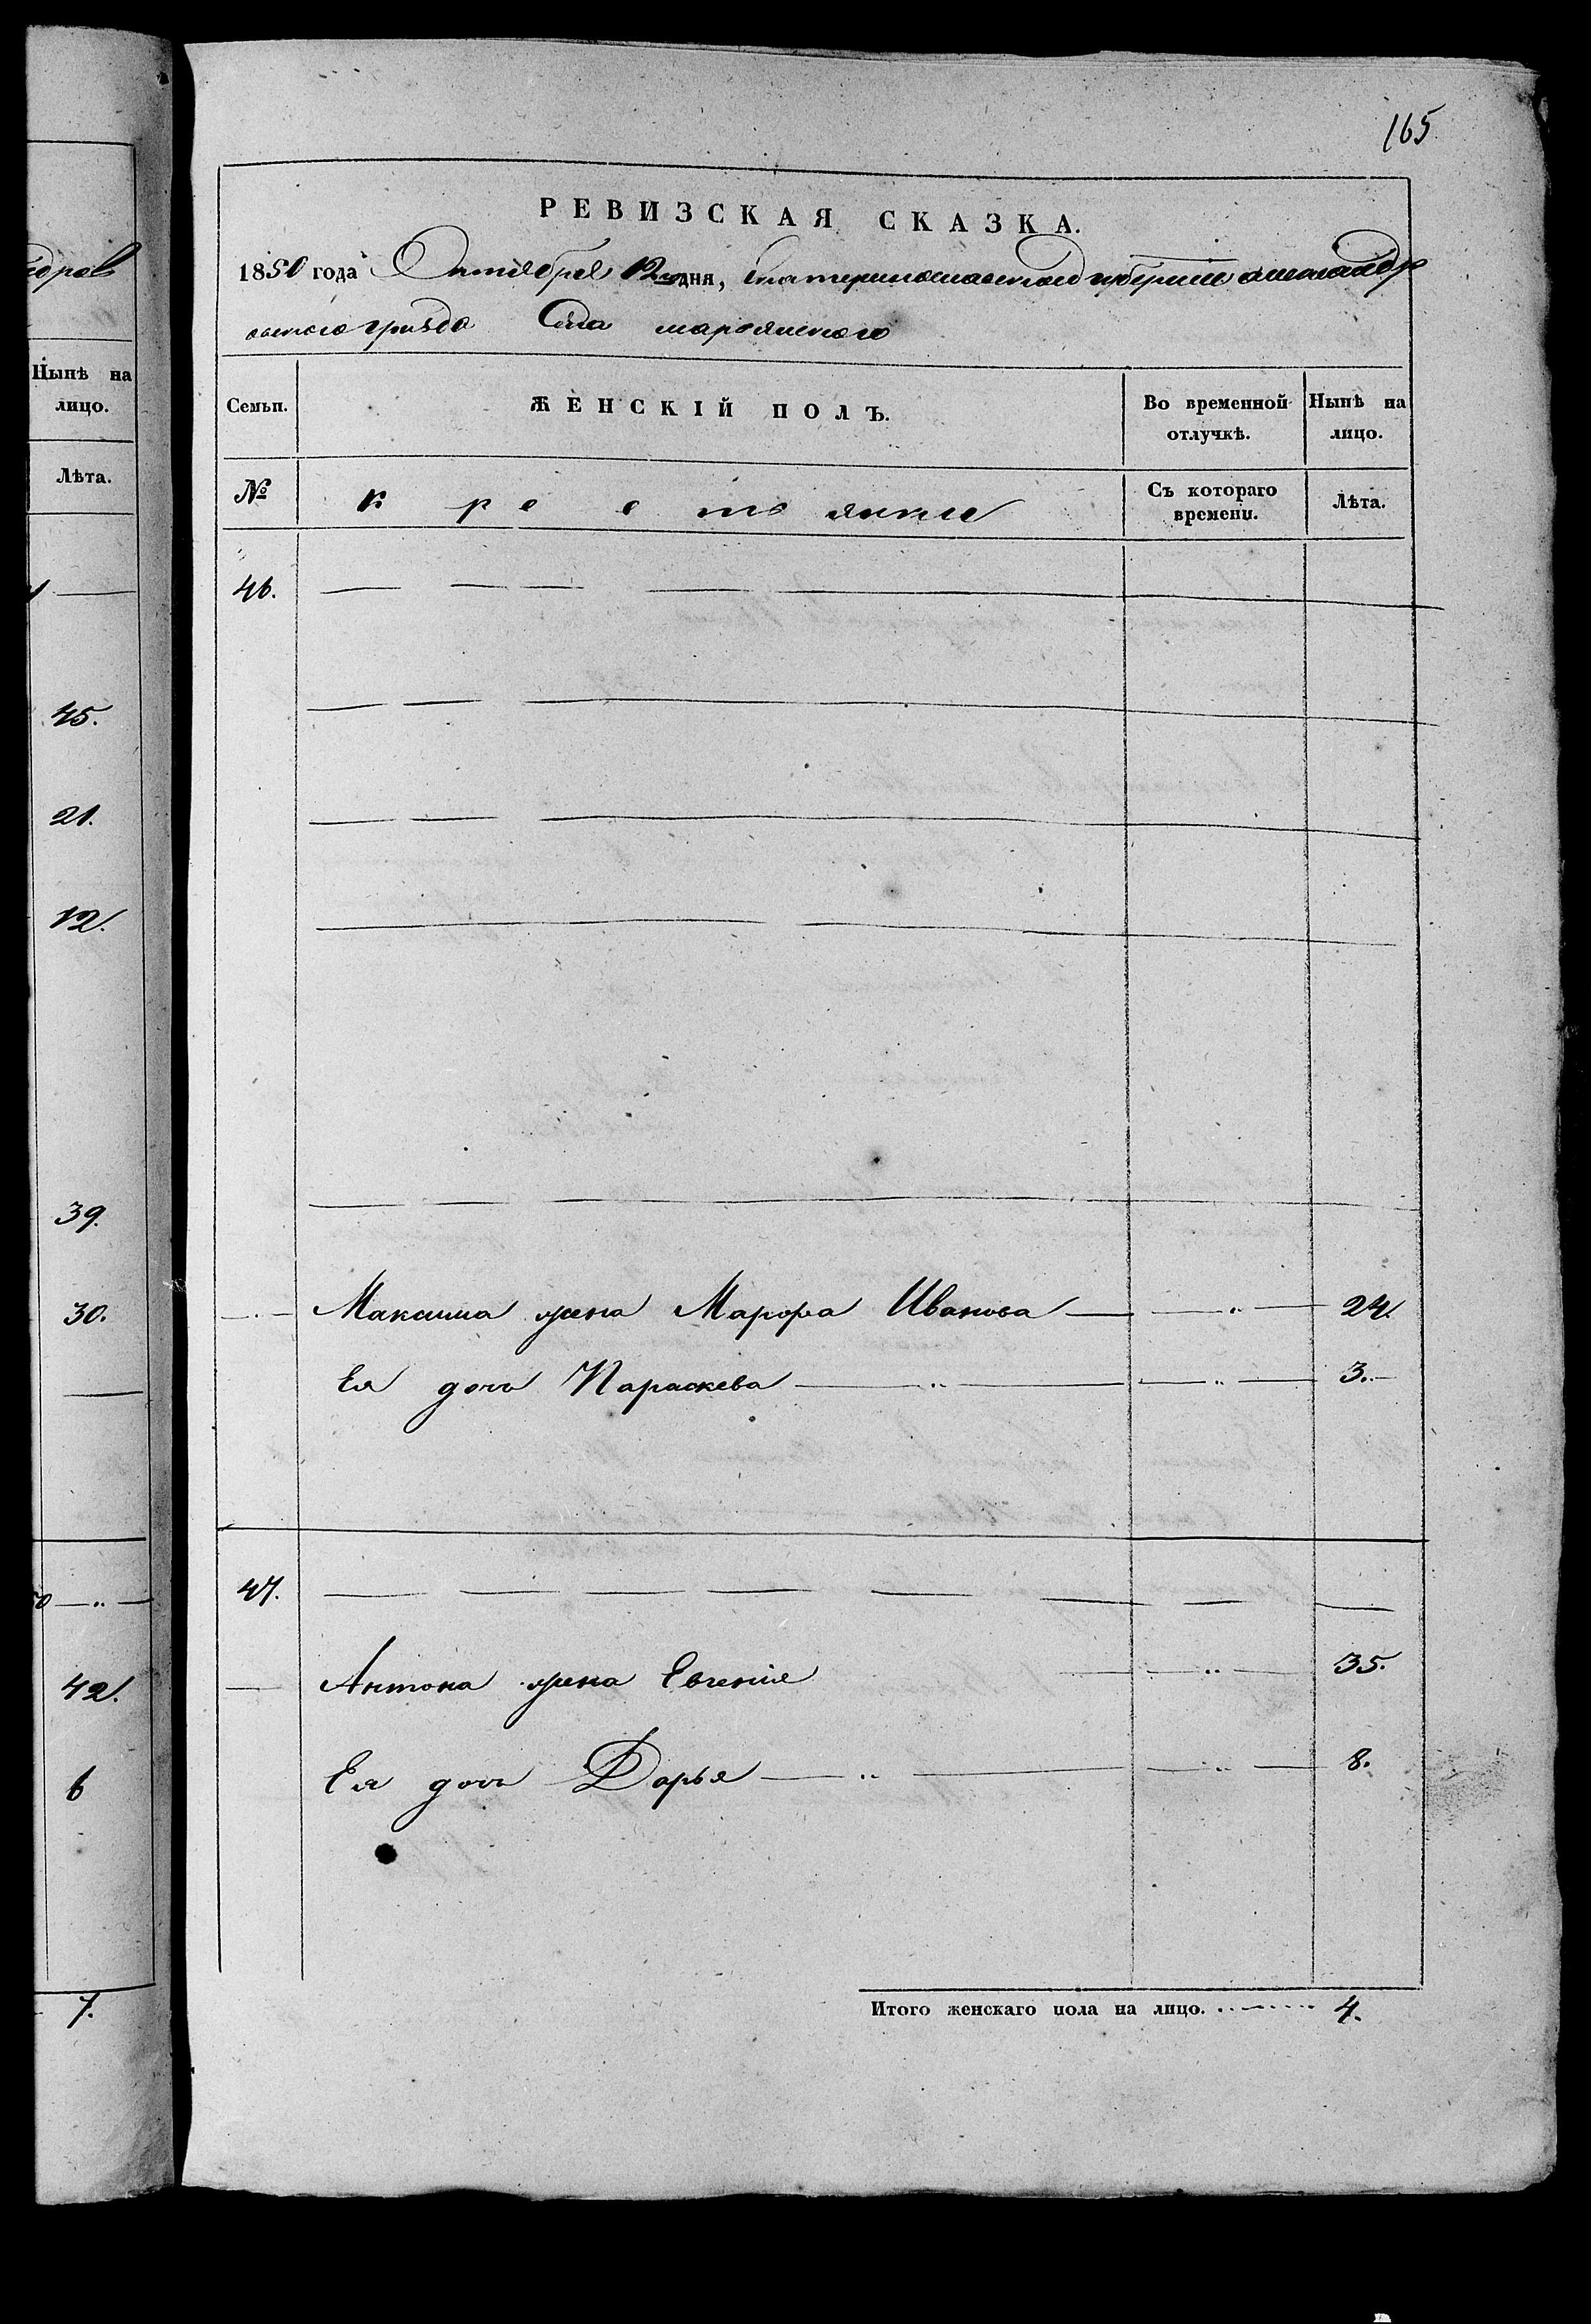 165
РЕВИЗСКАЯ СКАЗКА.
1850 года Октября 12 дня, Екатеринославской губерніи александр
овского уѣзда Села
едров
Ныне на лицо.
Лѣта.
Семьи.
ЖЕНСКІЙ ПОЛЪ.
Во временной отлучкѣ.
Нынѣ на лицо.
№
крестьянки
Съ котораго времени.
Лѣта.
46.
45.
21.
12.
39.
30.
Максима жена Марфа Иванова — „ — 24.
Ея дочь Параскева — „ — „ — 3.
47.
42.
Антона жена Евгенія — „ — 35.
6
Ея дочь Дарья — „ — „ — 8.
7.
Итого женскаго пола на лицо. 4.